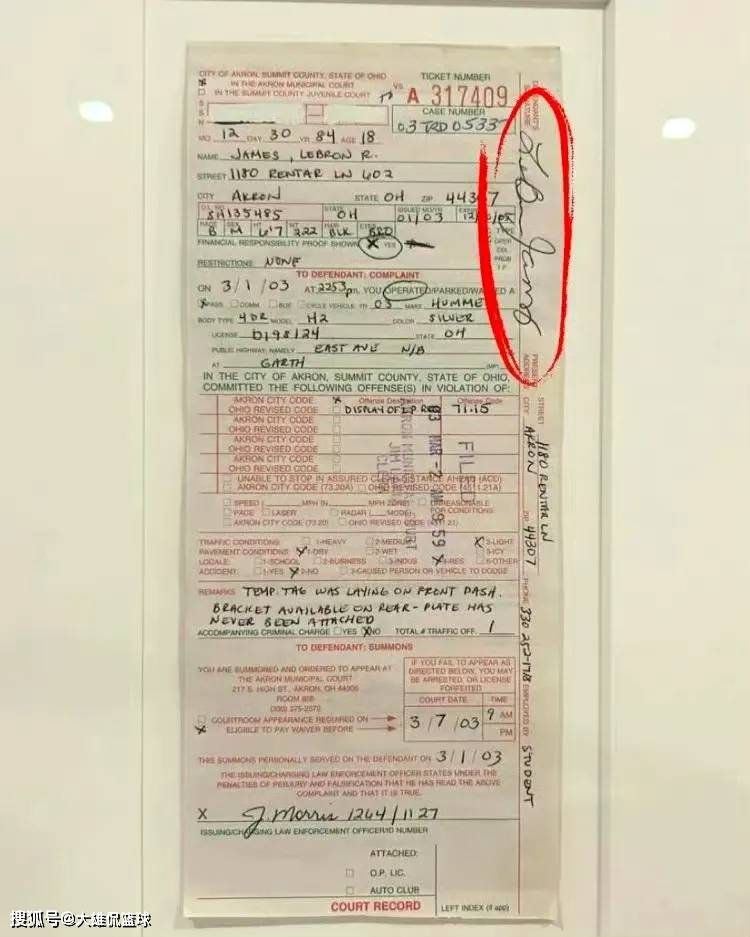 CITY OF AKRON, SUMMIT COUNTY, STATE OF OHIO
IN THE AKRON MUNICIPAL COURT
IN THE SUMMIT COUNTY JUVENILE COURT
VS
TICKET NUMBER
A 317409
CASE NUMBER
03 TRD 0533
S
S
N
MO 12 DAY 30 YR 84 AGE 18
NAME JAMES, LEBRON R.
STREET 1180 RENTAR LN 602
CITY AKRON STATE OH ZIP 44307
SH135485 STATE OH ISSUED MO/YR 01/03
RACE B SEX M HT 6'7 WT 222 HAIR BLK EYES BRO
FINANCIAL RESPONSIBILITY PROOF SHOWN X YES
RESTRICTIONS: NONE
TO DEFENDANT: COMPLAINT
ON 3/1/03 AT 2253 pm, YOU OPERATED/PARKED/WALKED A
PASS COMM. BUS CYCLE VEHICLE: YR 03 MAKE HUMME
BODY TYPE 4DR MODEL H2 COLOR SILVER
LICENSE D198124 STATE OH
PUBLIC HIGHWAY, NAMELY EAST AVE N/B
AT GARTH
IN THE CITY OF AKRON, SUMMIT COUNTY, STATE OF OHIO,
COMMITTED THE FOLLOWING OFFENSE(S) IN VIOLATION OF:
AKRON CITY CODE X Offense Description Offense Code
OHIO REVISED CODE DISPLAY OF LP 71.15
AKRON CITY CODE
OHIO REVISED CODE
AKRON CITY CODE
OHIO REVISED CODE
AKRON CITY CODE
OHIO REVISED CODE
UNABLE TO STOP IN ASSURED CLEAR DISTANCE AHEAD (ACD)
AKRON CITY CODE (73.20A) OHIO REVISED CODE (4511.21A)
SPEED MPH IN MPH ZONE UNREASONABLE
PACE LASER RADAR MODE FOR CONDITIONS
AKRON CITY CODE (73.20) OHIO REVISED CODE
FILED
AKRON MUNICIPAL COURT
TRAFFIC CONDITIONS: 1-HEAVY 2-MEDIUM X 3-LIGHT
PAVEMENT CONDITIONS X 1-DRY 2-WET 3-ICY
LOCALE: 1-SCHOOL 2-BUSINESS 3-INDUS X 4-RES 5-OTHER
ACCIDENT: 1-YES X 2-NO 3-CAUSED PERSON OR VEHICLE TO DODGE
REMARKS TEMP. TAG WAS LAYING ON FRONT DASH.
BRACKET AVAILABLE ON REAR - PLATE HAS
NEVER BEEN ATTACHED
ACCOMPANYING CRIMINAL CHARGE YES X NO TOTAL # TRAFFIC OFF. 1
TO DEFENDANT: SUMMONS
YOU ARE SUMMONED AND ORDERED TO APPEAR AT
THE AKRON MUNICIPAL COURT
217 S. HIGH ST., AKRON, OH
ROOM
COURTROOM APPEARANCE REQUIRED ON
X ELIGIBLE TO PAY WAIVER BEFORE
IF YOU FAIL TO APPEAR AS
DIRECTED BELOW, YOU MAY
BE ARRESTED, OR LICENSE
FORFEITED
COURT DATE TIME
3/7/03 9 AM
PM
THIS SUMMONS PERSONALLY SERVED ON THE DEFENDANT ON 3/1/03
THE ISSUING/CHARGING LAW ENFORCEMENT OFFICER STATES UNDER THE
PENALTIES OF PERJURY AND FALSIFICATION THAT HE HAS READ THE ABOVE
COMPLAINT AND THAT IT IS TRUE.
X J. Morris 1264/1127
ISSUING/CHARGING LAW ENFORCEMENT OFFICER/ID NUMBER
ATTACHED:
O.P. LIC.
AUTO CLUB
COURT RECORD LEFT INDEX (if app)
DEFENDANT'S SIGNATURE LeBron James
PRESENT ADDRESS STREET 1180 RENTAR LN
CITY AKRON ZIP 44307 PHONE 330 252-1718 EMPLOYED BY STUDENT
搜狐号@大雄侃篮球